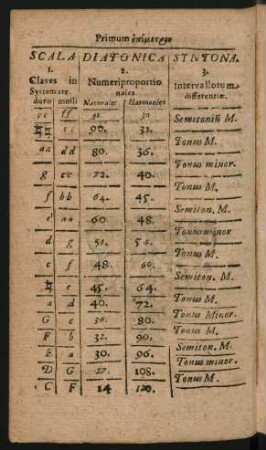 Primum ἐπίμετρον
SCALA DIATONICA SYNTONA.
1. 2. 3.
Claves in Numeri proportio Intervallorum
Systemate nales differentiæ.
duro molli Naturales Harmonici
cc ff 30.
Semitoniū M.
♮♮ ee 90. 32.
Tonus M.
aa dd 80. 36.
Tonus minor.
g cc 72. 40.
Tonus M.
f bb 64. 45.
Semiton. M.
e aa 60. 48.
Tonus minor
d g 54. 54.
Tonus M.
c f 48 60.
Semiton. M.
♮ e 45. 64.
Tonus M.
a d 40. 72.
Tonus Minor.
G c 36. 80.
Tonus M.
F b 32. 90.
Semiton. M.
E a 30. 96.
Tonus minor.
D G 27. 108.
Tonus M.
C F 24 120.